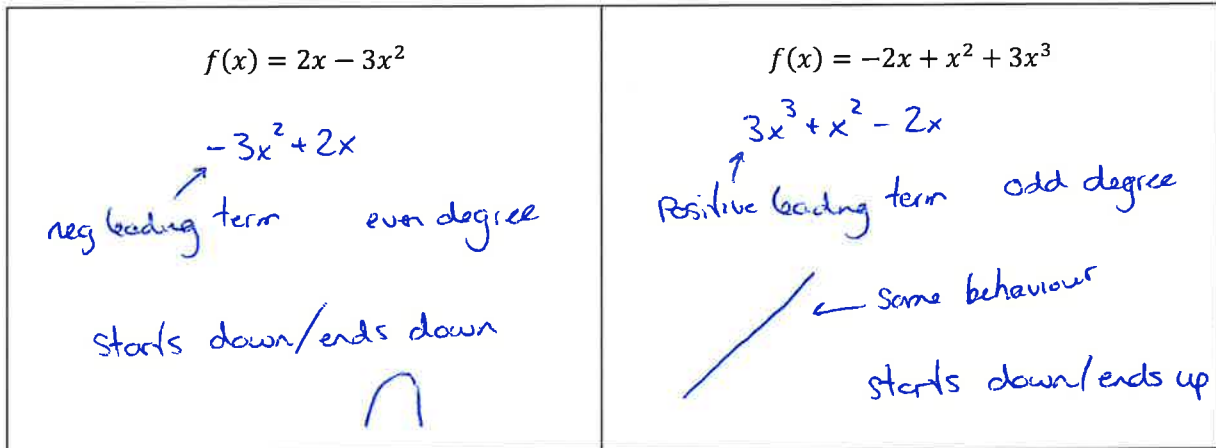 f(x) = 2x − 3x²
-3x² + 2x
neg leading term even degree
starts down/ends down
f(x) = −2x + x² + 3x³
3x³ + x² - 2x
Positive leading term odd degree
same behaviour
starts down/ends up